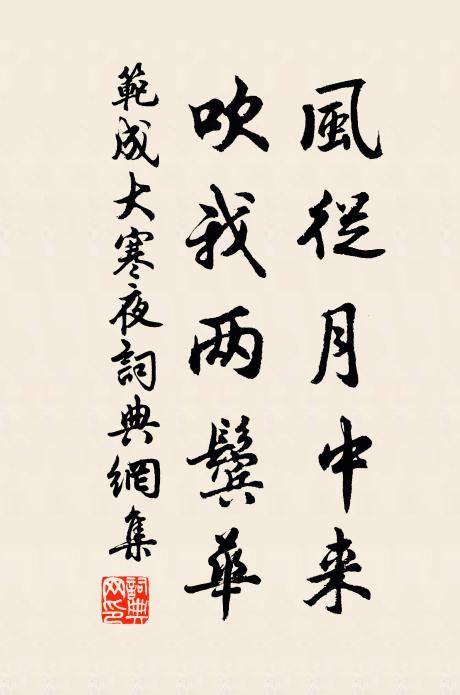 風從月中来
吹我两鬓華
範成大寒夜詞典網集
詞典网印